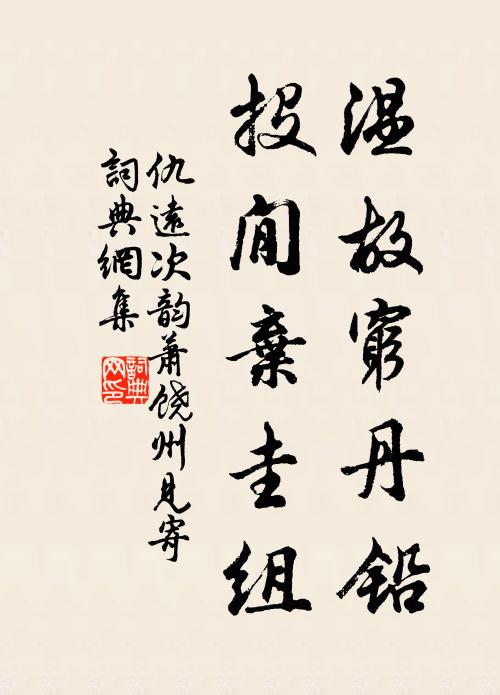 温故穷丹铅
投闲弃圭组
仇遠次韵萧饶州见寄
詞典網集
詞典网印